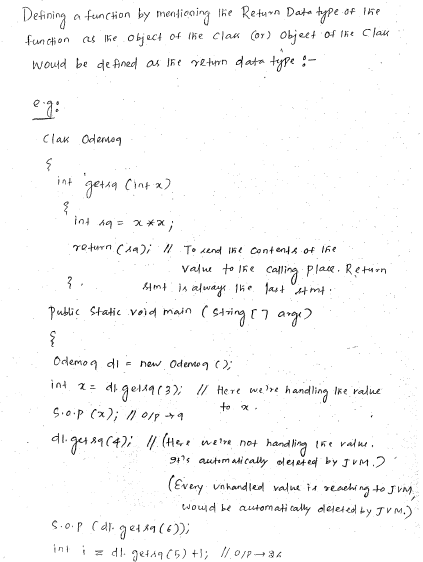 Defining a function by mentioning the Return Data type of the
function as the object of the class (or) object of the class
would be defined as the return data type :-
e.g:
Class Odemo9
{
int getsq (int x)
{
int sq = x*x;
return (sq); // To send the contents of the
value to the calling place. Return
} stmt is always the last stmt.
public static void main (string [ ] args)
{
Odemo9 d1 = new Odemo9 ();
int x = d1.getsq(3); // Here we're handling the value
to x.
S.o.p (x); // o/p → 9
d1.getsq(4); // (Here we're not handling the value.
It's automatically deleted by JVM.)
(Every unhandled value is reaching to JVM,
would be automatically deleted by JVM.)
S.o.p (d1.getsq(6));
int i = d1.getsq(5) +1; // o/p → 26